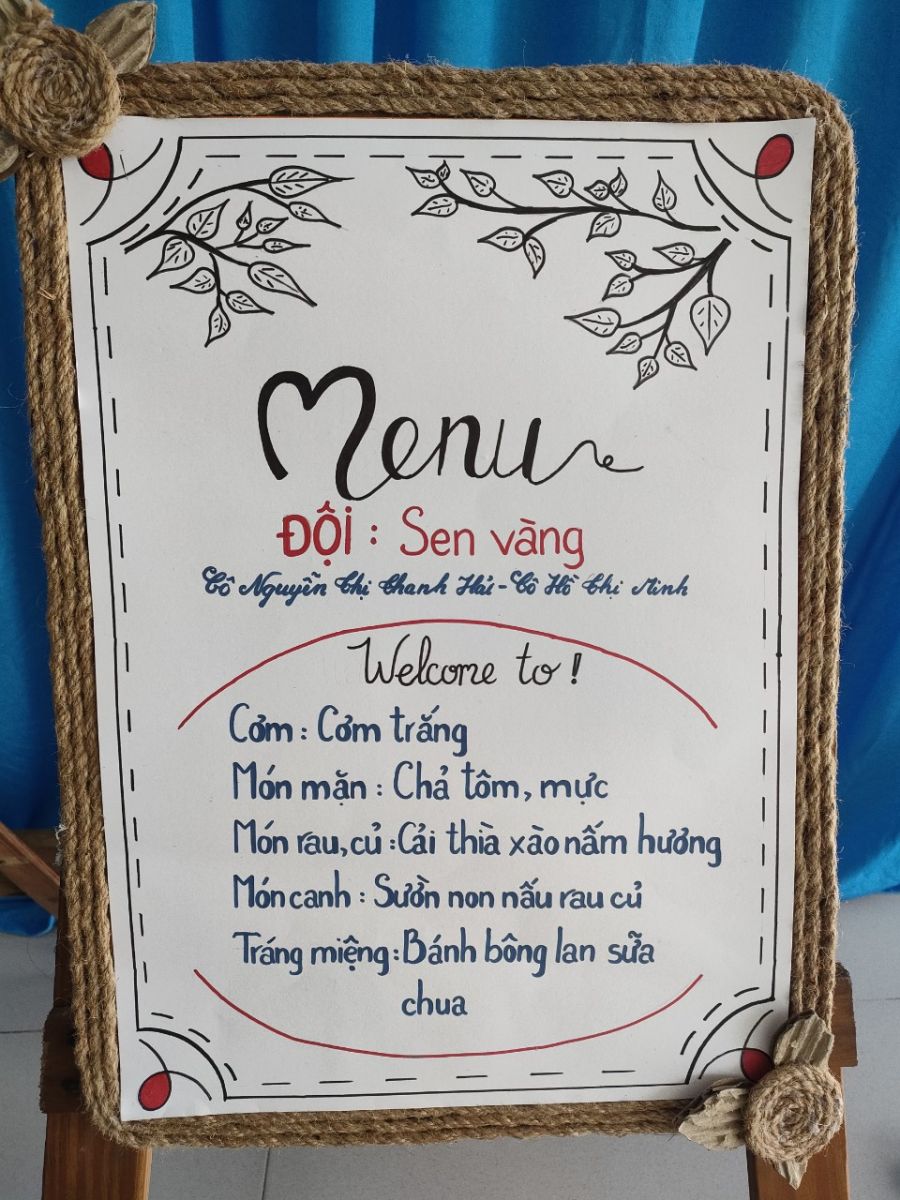 Menu
ĐỘI : Sen vàng
Cô Nguyễn Thị Thanh Hải - Cô Hồ Thị Minh
Welcome to !
Cơm : Cơm trắng
Món mặn : Chả tôm, mực
Món rau, củ : Cải thìa xào nấm hương
Món canh : Sườn non nấu rau củ
Tráng miệng : Bánh bông lan sữa
chua